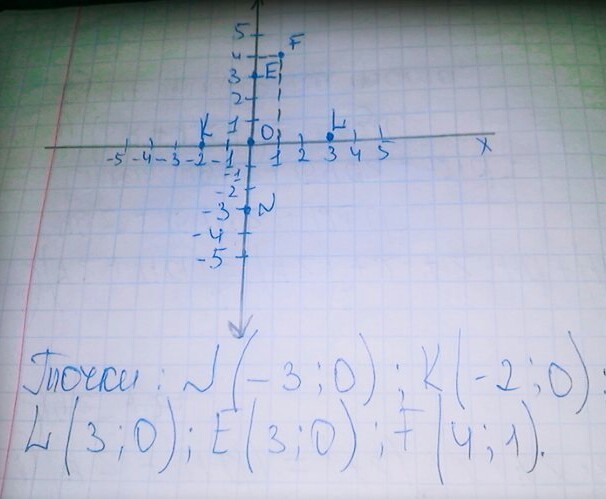 5
4 F
3 E
2
1
K O L
-5 -4 -3 -2 -1 1 2 3 4 5 x
-1
-2
-3 N
-4
-5
Точки: N(-3;0); K(-2;0);
L(3;0); E(3;0); F(4;1).